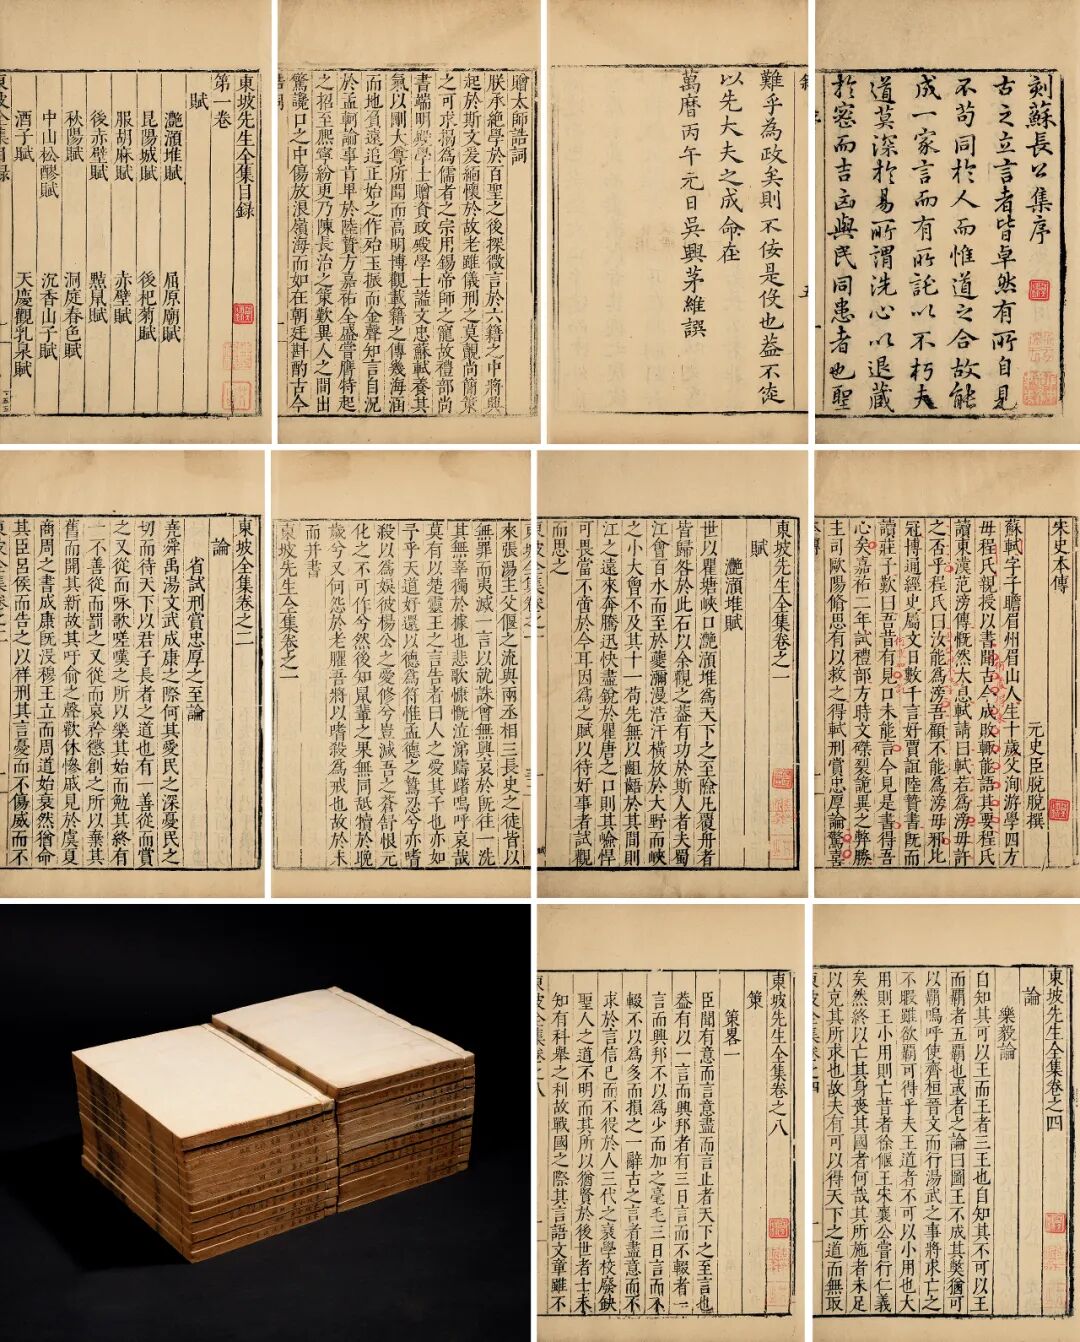 刻蘇長公集序
古之立言者皆卓然有所自見
不苟同於人而惟道之合故能
成一家言而有所託以不朽夫
道莫深於易所謂洗心以退藏
於密而吉凶與民同患者也聖
難乎為政矣則不佞是役也葢不徒
以先大夫之成命在
萬曆丙午元日吳興茅維譔
贈太師誥詞
朕承絶學於百聖之後探微言於六籍之中將興
起於斯文爰緬懷於故老雖儀刑之莫覿尚簡策
之可求揭為儒者之宗用錫帝師之寵故禮部尚
書端明殿學士贈資政殿學士謚文忠蘇軾養其
氣以剛大尊所聞而高明博觀載籍之傳幾海涵
而地負遠追正始之作殆玉振而金聲知言自況
於孟軻論事肯卑於陸贄方嘉祐全盛嘗膺特起
之招至熙寧紛更乃陳長治之策歎異人之間出
驚讒口之中傷放浪嶺海而如在朝廷斟酌古今
東坡先生全集目録
第一卷
賦
灔澦堆賦 屈原廟賦
昆陽城賦 後杞菊賦
服胡麻賦 赤壁賦
後赤壁賦 黠鼠賦
秋陽賦 洞庭春色賦
中山松醪賦 沉香山子賦
酒子賦 天慶觀乳泉賦
東坡全集目録
宋史本傳
元史臣脫脫撰
蘇軾字子瞻眉州眉山人生十歲父洵游學四方
母程氏親授以書聞古今成敗輒能語其要程氏
讀東漢范滂傳慨然大息軾請曰軾若為滂母許
之否乎程氏曰汝能為滂吾顧不能為滂母邪比
冠博通經史屬文日數千言好賈誼陸贄書既而
讀莊子歎曰吾昔有見口未能言今見是書得吾
心矣嘉祐二年試禮部方時文磔裂詭異之弊勝
主司歐陽脩思有以救之得軾刑賞忠厚論驚喜
東坡先生全集卷之一
賦
灔澦堆賦
世以瞿塘峽口灔澦堆為天下之至險凡覆舟者
皆歸咎於此石以余觀之葢有功於斯人者夫蜀
江會百水而至於夔瀰漫浩汗橫放於大野而峽
之小大曾不及其十一苟先無以齟齬於其間則
江之遠來奔騰迅快盡銳於瞿唐之口則其嶮悍
可畏當不啻於今耳因為之賦以待好事者試觀
而思之
來張湯主父偃之流與兩丞相三長史之徒皆以
無罪而夷滅一言以就誅曾無興哀於既往一洗
其無辜獨於據也悲歌慷慨泣涕躊躇嗚呼哀哉
莫有以楚靈王之言告者曰人之愛其子也亦如
予乎天道好還以德為符惟孟德之鷙忍兮亦嗜
殺以為娛彼楊公之愛修兮豈滅吾之蒼舒恨元
化之不可作兮然後知鼠輩之果無同舐犢於晚
歲兮又何怨於老臞吾將以嗜殺為戒也故於末
而并書
東坡先生全集卷之一
東坡全集卷之二
論
省試刑賞忠厚之至論
堯舜禹湯文武成康之際何其愛民之深憂民之
切而待天下以君子長者之道也有一善從而賞
之又從而咏歌嗟嘆之所以樂其始而勉其終有
一不善從而罰之又從而哀矜懲創之所以棄其
舊而開其新故其吁俞之聲歡休慘戚見於虞夏
商周之書成康既沒穆王立而周道始衰然猶命
其臣呂侯而告之以祥刑其言憂而不傷威而不
東坡全集卷之二
東坡先生全集卷之四
論
樂毅論
自知其可以王而王者三王也自知其不可以王
而覇者五覇也或者之論曰圖王不成其獘猶可
以覇嗚呼使齊桓晉文而行湯武之事將求亡之
不暇雖欲覇可得乎夫王道者不可以小用也大
用則王小用則亡昔者徐偃王宋襄公嘗行仁義
矣然終以亡其身喪其國者何哉其所施者未足
以充其所求也故夫有可以得天下之道而無取
東坡全集卷之四
東坡先生全集卷之八
策
策畧一
臣聞有意而言意盡而言止者天下之至言也
葢有以一言而興邦者有三日言而不輟者一
言而興邦不以為少而加之毫毛三日言而不
輟不以為多而損之一辭古之言者盡意而不
求於言信巳而不役於人三代之衰學校廢缺
聖人之道不明而其所以猶賢於後世者士未
知有科舉之利故戰國之際其言語文章雖不
東坡全集卷之八